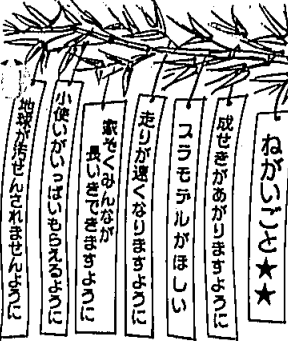 ねがいごと★★
成せきがあがりますように
プラモデルがほしい
走りが速くなりますように
家ぞくみんなが
長いきできますように
小使いがいっぱいもらえるように
地球が汚せんされませんように